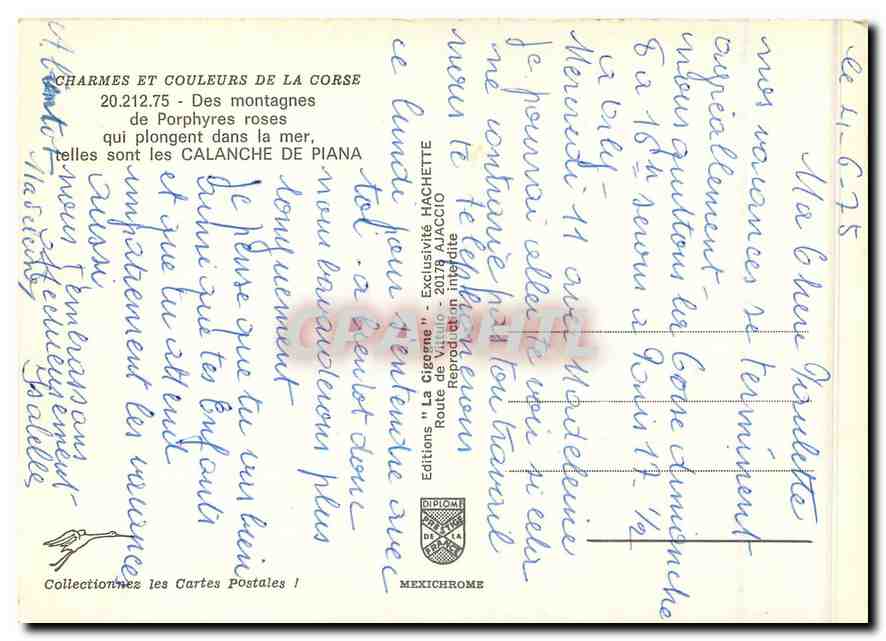 CHARMES ET COULEURS DE LA CORSE
20.212.75 - Des montagnes
de Porphyres roses
qui plongent dans la mer,
telles sont les CALANCHE DE PIANA
Editions "La Cigogne" - Exclusivité HACHETTE
Route de Vittulo - 20178 AJACCIO
Reproduction interdite
DIPLOME
PRESTIGE
DE LA
FRANCE
MEXICHROME
Collectionnez les Cartes Postales !
CPARHTL
le 4-6-75
Ma Chère Paulette
nos vacances se terminent
agréablement -
nous quittons la Corse dimanche
8 à 16h serons à Paris 17 1/2
à Orly -
Mercredi 11 avec Madeleine
je pourrai aller te voir si cela
ne contrarie pas ton travail
nous te téléphonerons
ce lundi pour s'entendre avec
toi - à bientôt donc
nous bavarderons plus
longuement
Je pense que tu vas bien
ainsi que tes Enfants
et que tu attend
impatiemment les vacances
aussi
nous t'embrassons
affectueusement
A bientôt
Madeleine
Isabelle